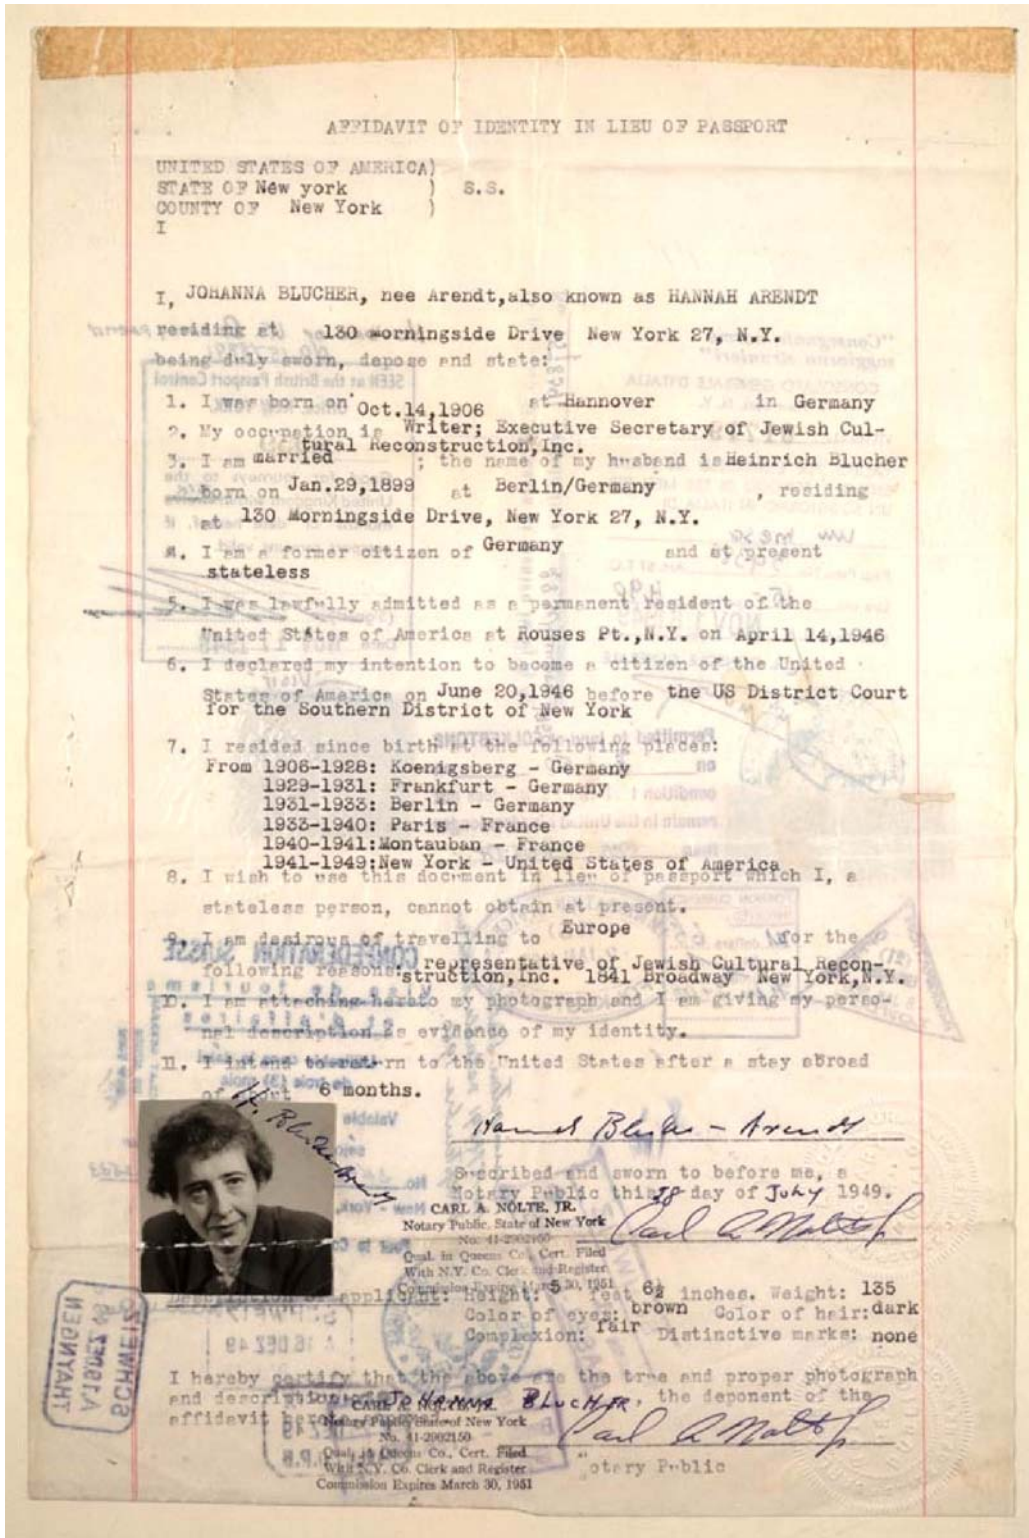 AFFIDAVIT OF IDENTITY IN LIEU OF PASSPORT
UNITED STATES OF AMERICA)
STATE OF New york ) S.S.
COUNTY OF New York )
I
I, JOHANNA BLUCHER, nee Arendt,also known as HANNAH ARENDT
residing at 130 Morningside Drive New York 27, N.Y.
being duly sworn, depose and state:
1. I was born on Oct.14,1906 at Hannover in Germany
2. My occupation is Writer; Executive Secretary of Jewish Cul-
tural Reconstruction,Inc.
3. I am married ; the name of my husband is Heinrich Blucher
born on Jan.29,1899 at Berlin/Germany , residing
at 130 Morningside Drive, New York 27, N.Y.
4. I am a former citizen of Germany and at present
stateless
5. I was lawfully admitted as a permanent resident of the
United States of America at Rouses Pt.,N.Y. on April 14,1946
6. I declared my intention to become a citizen of the United
States of America on June 20,1946 before the US District Court
for the Southern District of New York
7. I resided since birth at the following places:
From 1906-1928: Koenigsberg - Germany
1929-1931: Frankfurt - Germany
1931-1933: Berlin - Germany
1933-1940: Paris - France
1940-1941:Montauban - France
1941-1949:New York - United States of America
8. I wish to use this document in lieu of passport which I, a
stateless person, cannot obtain at present.
9. I am desirous of travelling to Europe for the
following reasons: representative of Jewish Cultural Recon-
struction,Inc. 1841 Broadway New York,N.Y.
10. I am attaching hereto my photograph and I am giving my perso-
nal description as evidence of my identity.
11. I intend to return to the United States after a stay abroad
of 6 months.
H. Blücher-Arendt
Hannah Blücher - Arendt
Suscribed and sworn to before me, a
Notary Public this 28 day of July 1949.
CARL A. NOLTE, JR.
Notary Public, State of New York
No. 41-2902150
Qual. in Queens Co., Cert. Filed
With N.Y. Co. Clerk and Register
Commission Expires March 30, 1951
Carl A Nolte Jr
Description of applicant: Height: 5 feet 6½ inches. Weight: 135
Color of eyes: brown Color of hair: dark
Complexion: fair Distinctive marks: none
I hereby certify that the above are the true and proper photograph
and description of JOHANNA BLUCHER, the deponent of the
affidavit
CARL A. NOLTE, JR.
Notary Public, State of New York
No. 41-2902150
Qual. in Queens Co., Cert. Filed
With N.Y. Co. Clerk and Register
Commission Expires March 30, 1951
Carl A Nolte Jr
Notary Public
SCHWEIZ
THAYNGEN
CONFEDERATION SUISSE